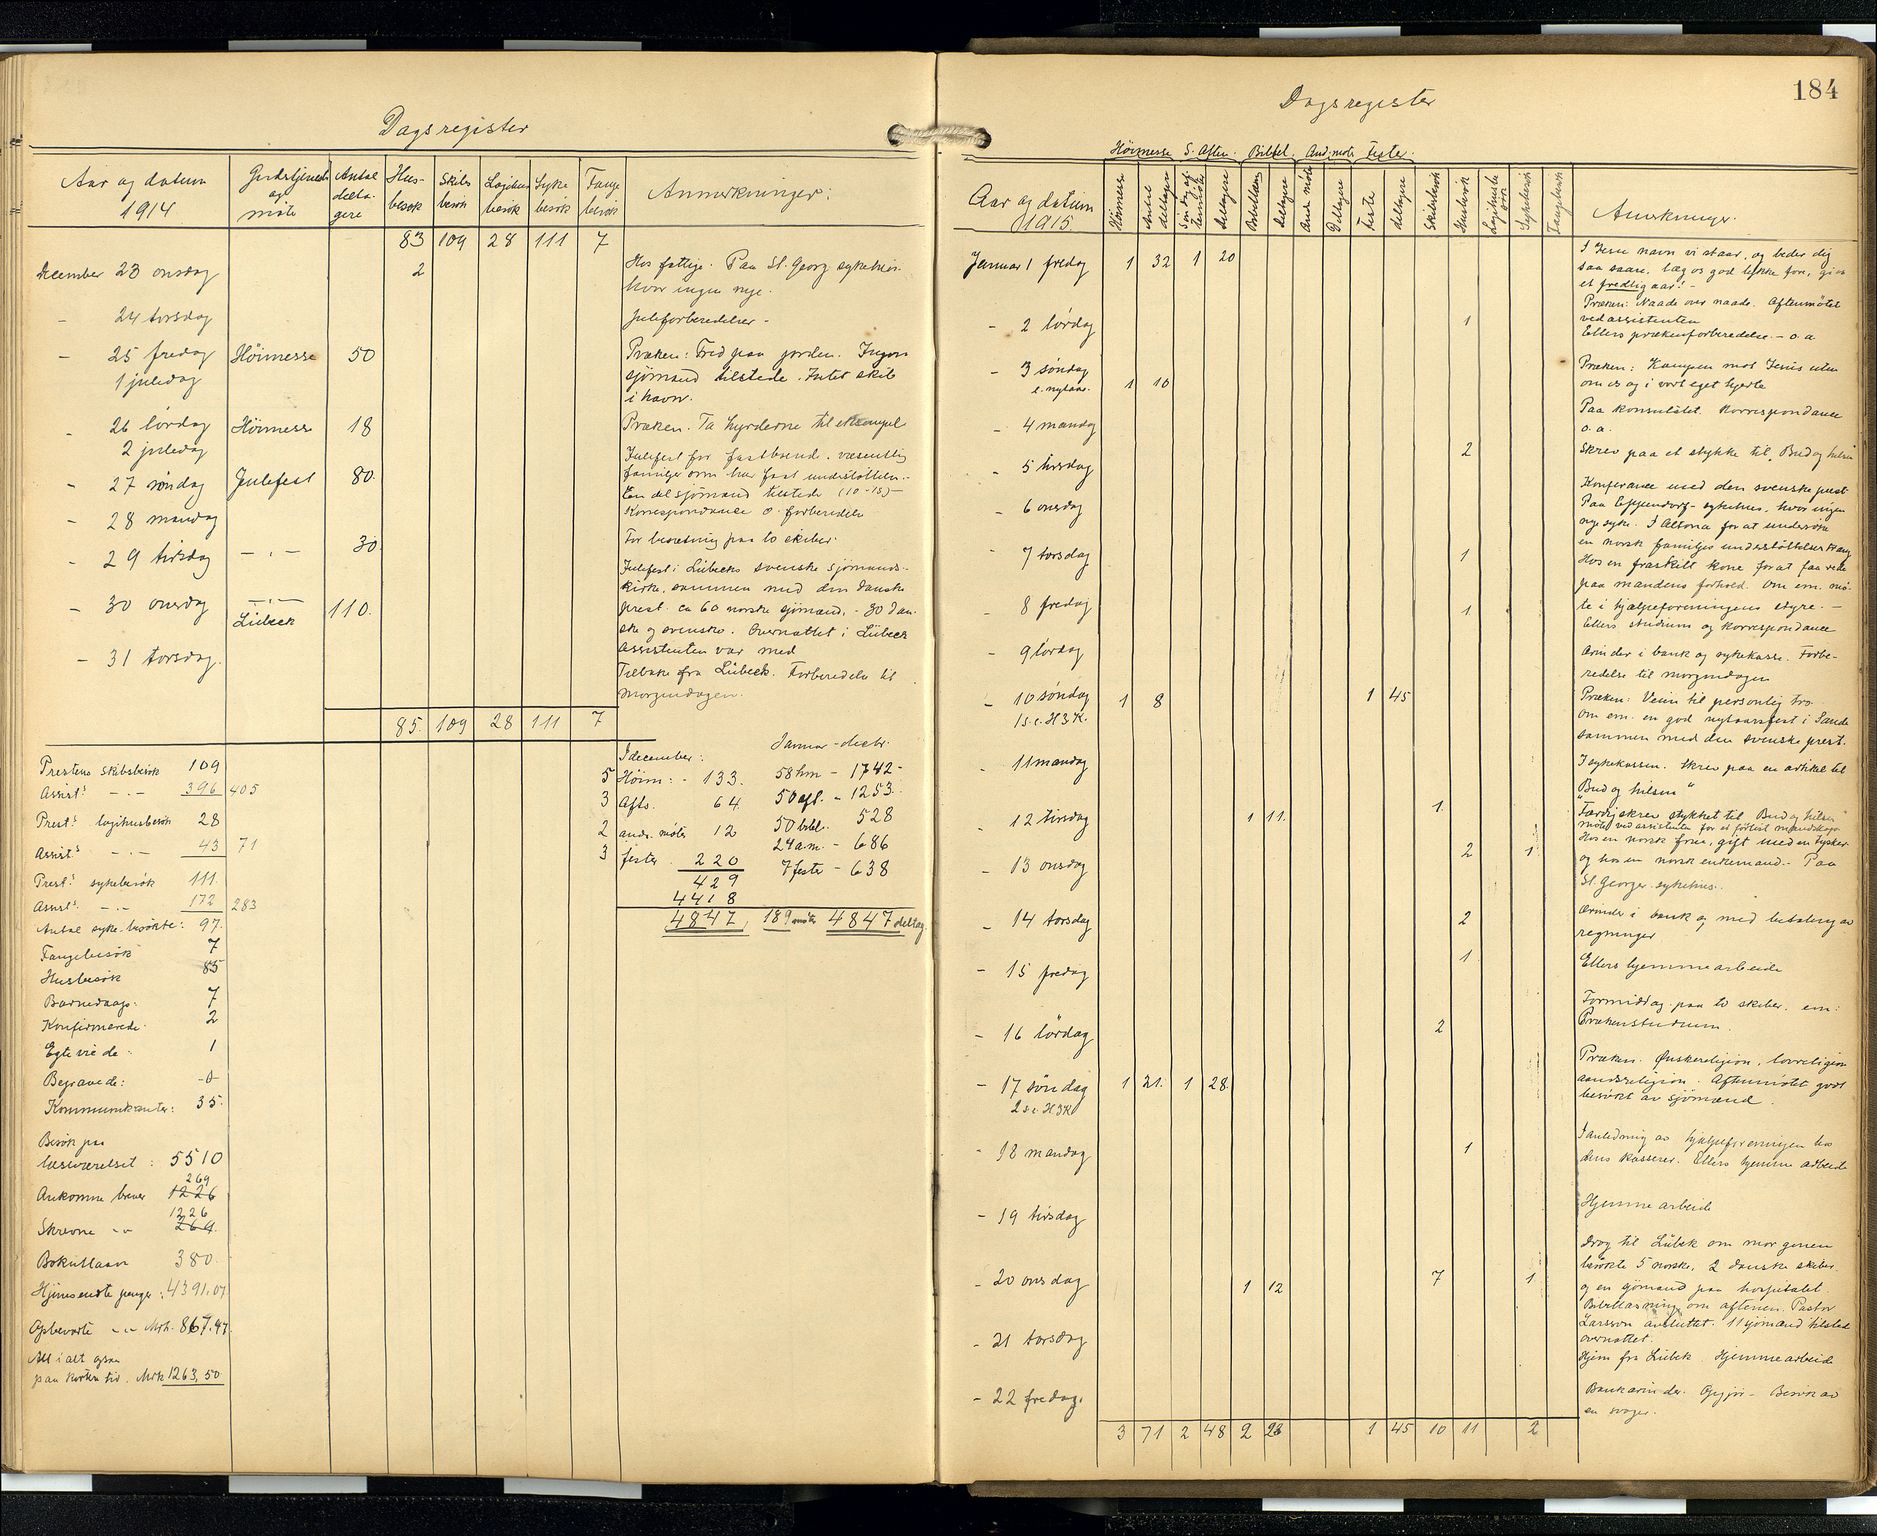 Dagsregister
Aar og datum 1914
Gudstjeneste og møte
Antal delta-gere
Hus-besøk
Skibs besøk
Logihus besøk
Syke besøk
Fange besøk
Anmerkninger:
83 109 28 111 7
December 23 onsdag 2 Hos fattige. Paa St. Georg sykehus
hvor ingen nye.
- 24 torsdag Juleforberedelser -
- 25 fredag Höimesse 50 Præken: Fred paa jorden. Ingen
1 juledag sjömand tilstede. Intet skib
i havn.
- 26 lördag Höimesse 18 Præken. Ta hyrderne til eksempel
2 juledag
- 27 söndag Julefest 80. Julefest for fastboend. væsentlig
familjer som har fast understöttelse.-
En del sjömænd tilstede (10-15) -
- 28 mandag Korrespondance o. forberedels
- 29 tirsdag -.- 30. For besætning paa to skiber.
- 30 onsdag -.- Lübeck 110. Julefest i Lübecks svenske sjömands-
kirke, sammen med den danske
prest. ca 60 norske sjömænd, - 30 dan-
ske og svenske. Overnattet i Lübeck
Assistenten var med
- 31 torsdag. Tilbake fra Lübeck. Forberedels til
morgendagen.
85. 109 28 111 7
Prestens skibsbesök 109
Assist.s -.- 396 405
Prest.s logihusbesök 28
Assist.s -.- 43 71
Prest.s sykebesök 111.
Assist.s -.- 172 283
Antal syke besökte: 97.
Fangebesök 7
Husbesök 85
Barnedaap: 7
Konfirmerede. 2
Egteviede: 1
Begravede: -0-
Kommunikanter: 35.
Besök paa
læseværelset: 5510
269
Ankomne breve 1226
1226
Skrevne -"- 269.
Bokutlaan 380.
Hjemsendte penger: 4391.07
Opbevarte -"- Mrk. 867.47
Alt i alt ogsaa
paa kortere tid. Mrk 1263,50
I december:
5 Höim: - 133.
3 Afts. 64.
2 andr. möter 12
3 fester 220
429
4418
4847
Januar - decbr.
58 hm - 1742-
50 aft. - 1253.
50 bibl. 528
24 a.m. - 686
7 feste - 638
189 möter 4847 deltag.
184
Dagsregister
Höimesse S. Aften. Bibel. And. möte Feste.
Aar og datum 1915
Höimesse
Antal deltagere
Söndag af-tenmöter
Deltagere
Bibellæsn
Deltagere
And möte
Deltagere
Feste
deltagere
Skibsbesök
Husbesök
Logihusbe sök
Sykebesök
Fangbesök
Anmerkninger.
Januar 1 fredag 1 32 1 20 I Jesu navn vi staar, og beder dig
saa saare, læg os god lykke fore, giv os
et fredlig aar! -
Præken: Naade over naade. Aftenmötet
ved assistenten
- 2 lördag 1 Ellers prækenforberedelse. - o.a.
- 3 söndag 1 10 Præken: Kampen mot Jesus uten
e. nytaar. om os og i vort eget hjerte
- 4 mandag Paa konsulatet. Korrespondance
o.a.
- 5 tirsdag 2 Skrev paa et stykke til "Bud og hilsen
- 6 onsdag Konferance med den svenske prest
Paa Eppendorf-sykehus, hvor ingen
nye syke. I Altona for at undersöke
en norsk familjes understöttelsestrang
- 7 torsdag 1 Hos en fraskilt kone for at faa rede
paa mandens forhold. Om em. mö-
- 8 fredag 1 te i hjælpeforeningens styre. -
Ellers studium og korrespondance
- 9 lördag Ærinder i bank og sykekasse. Forbe-
redelse til morgendagen
- 10 söndag 1 8 1 45 Præken: Veien til personlig tro.
1 s.e. H3K. Om em. en god nytaarsfest i Sande
sammen med den svenske prest.
- 11 mandag I sykekassen. Skrev paa en artikel til
"Bud og hilsen"
- 12 tirsdag 1 11. 1. Færdigskrev stykket til Bud og hilsen
möte ved assistenten for et forlist mandskap
- 13 onsdag 2 1 Hos en norsk frue, gift med en tysker
og hos en norsk enkemand. - Paa
St. Georger sykehus.
- 14 torsdag 2 Ærinder i bank og med betaling av
regninger
- 15 fredag 1 Ellers hjemmearbeide
- 16 lördag 2 Formiddag paa to skiber. em:
Prækenstudium.
- 17 söndag 1 21. 1 28. Præken. Önskereligion, lovreligion
2 s.e. H3K aandsreligion. Aftenmötet godt
besökt av sjömænd.
- 18 mandag 1 I anledning av hjælpeforeningen hos
dens kasserer. Ellers hjemmearbeide
- 19 tirsdag Hjemmearbeide
- 20 onsdag 1 12 7 1 Drog til Lübek om morgenen
besökte 5 norske, 2 danske skiber
og en sjömand paa hospitalet.
Bibellæsning om aftenen. Pastor
Larsson avsluttet. 11 sjömænd tilstede
overnattet.
- 21 torsdag Hjem fra Lübek. Hjemmearbeide
- 22 fredag. Bankærinder. - Besök av
en svoger.
3 71 2 48 2 23 1 45 10 11 2